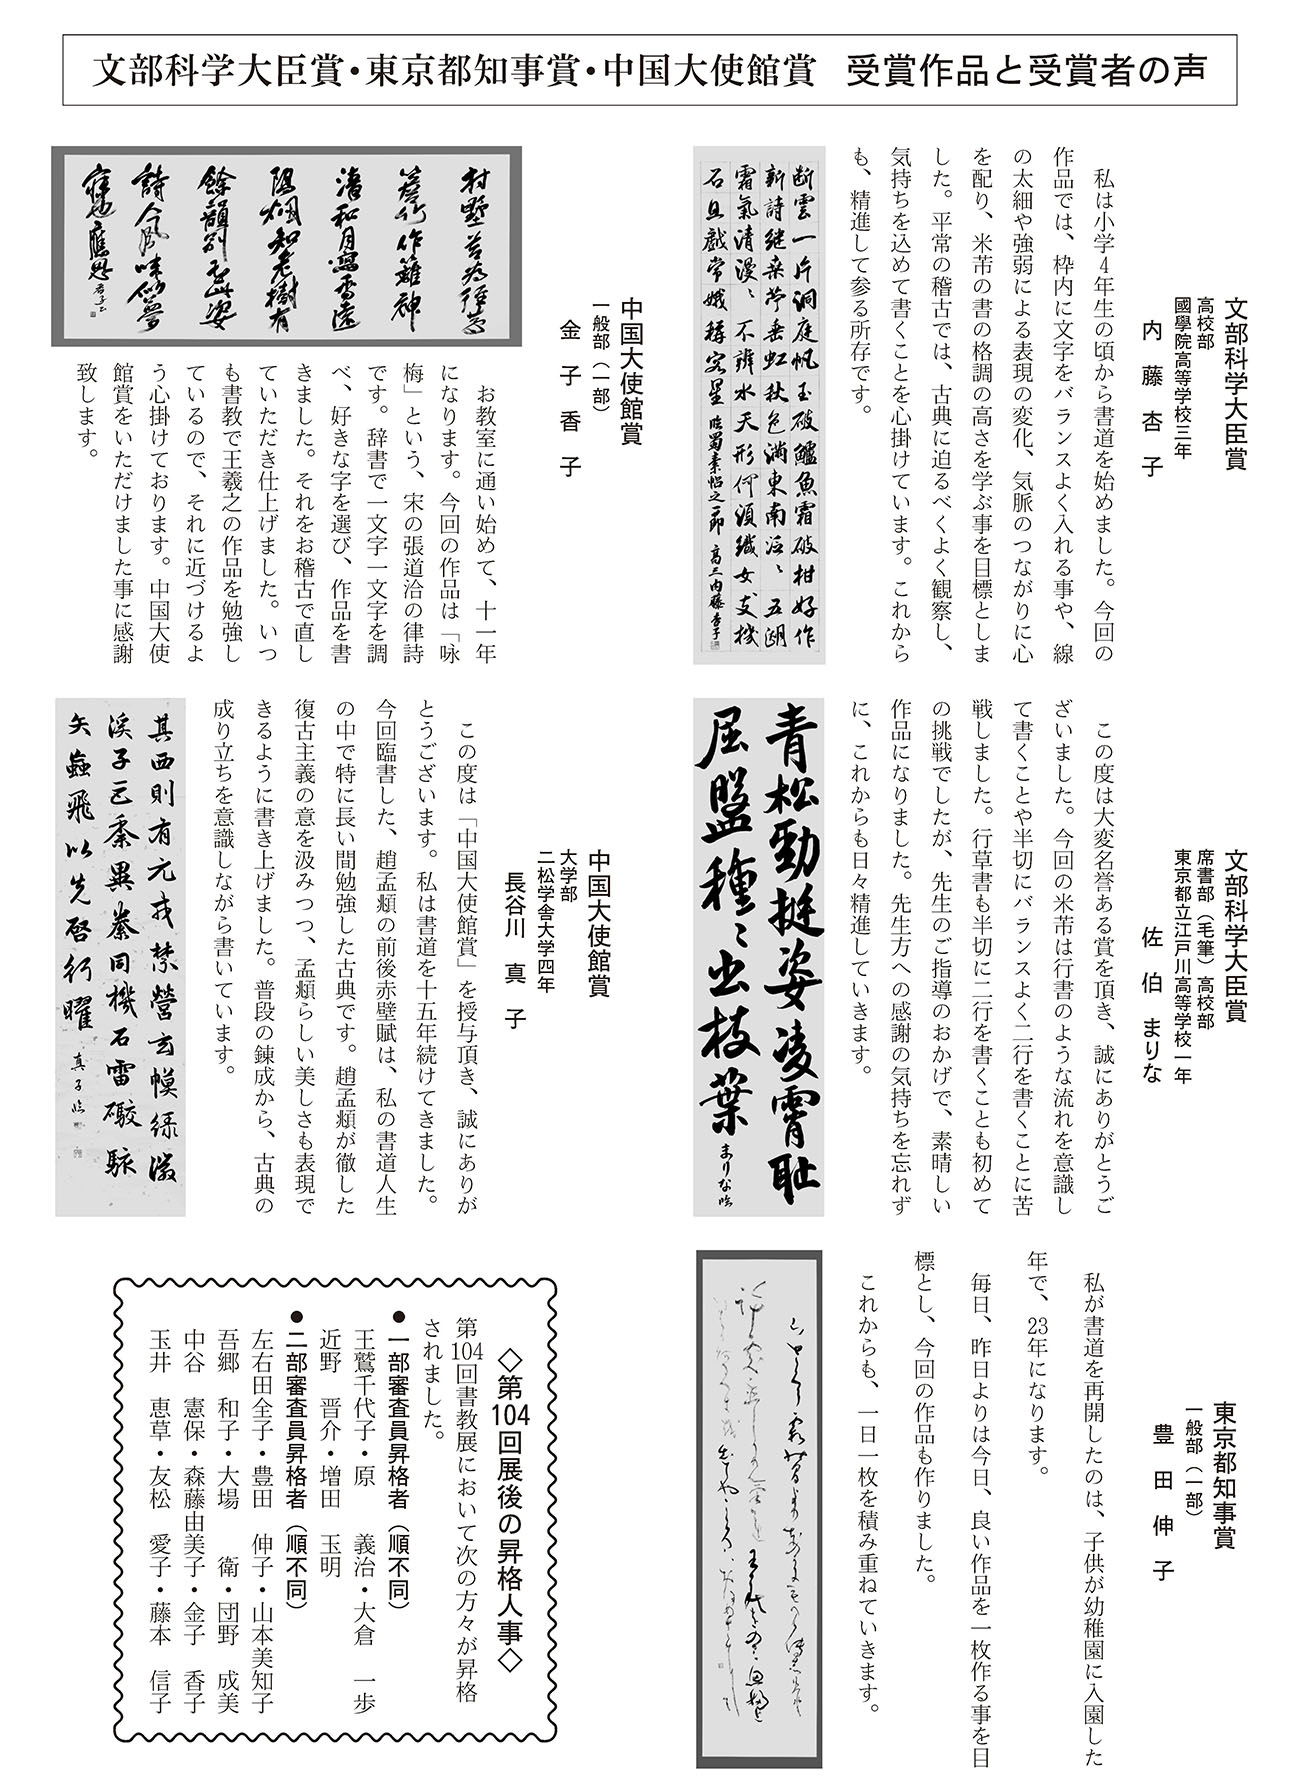 文部科学大臣賞・東京都知事賞・中国大使館賞　受賞作品と受賞者の声
文部科学大臣賞
高校部
國學院高等学校三年
内藤杏子
　私は小学4年生の頃から書道を始めました。今回の
作品では、枠内に文字をバランスよく入れる事や、線
の太細や強弱による表現の変化、気脈のつながりに心
を配り、米芾の書の格調の高さを学ぶ事を目標としま
した。平常の稽古では、古典に迫るべくよく観察し、
気持ちを込めて書くことを心掛けています。これから
も、精進して参る所存です。
断雲一片洞庭帆玉破鱸魚霜破柑好作
新詩継桑苧垂虹秋色満東南泛〻五湖
霜氣清漫〻不辨水天形何須織女支機
石且戯常娥稱客星 臨蜀素帖之一節 高三内藤杏子
中国大使館賞
一般部（一部）
金子香子
村墅苔為徑茅
簷竹作籬神
清和月寫香遠
隔烟知老樹有
餘韻別
詩
　お教室に通い始めて、十一年
になります。今回の作品は「咏
梅」という、宋の張道洽の律詩
です。辞書で一文字一文字を調
べ、好きな字を選び、作品を書
きました。それをお稽古で直し
ていただき仕上げました。いつ
も書教で王羲之の作品を勉強し
ているので、それに近づけるよ
う心掛けております。中国大使
館賞をいただけました事に感謝
致します。
文部科学大臣賞
席書部（毛筆）高校部
東京都立江戸川高等学校一年
佐伯まりな
　この度は大変名誉ある賞を頂き、誠にありがとうご
ざいました。今回の米芾は行書のような流れを意識し
て書くことや半切にバランスよく二行を書くことに苦
戦しました。行草書も半切に二行を書くことも初めて
の挑戦でしたが、先生のご指導のおかげで、素晴しい
作品になりました。先生方への感謝の気持ちを忘れず
に、これからも日々精進していきます。
青松勁挺姿凌霄恥
屈盤種〻出枝葉 まりな臨
中国大使館賞
大学部
二松学舎大学四年
長谷川真子
　この度は「中国大使館賞」を授与頂き、誠にありが
とうございます。私は書道を十五年続けてきました。
今回臨書した、趙孟頫の前後赤壁賦は、私の書道人生
の中で特に長い間勉強した古典です。趙孟頫が徹した
復古主義の意を汲みつつ、孟頫らしい美しさも表現で
きるように書き上げました。普段の錬成から、古典の
成り立ちを意識しながら書いています。
其西則有元戎禁營玄幙緑徽
谿子巨黍異絭同機石雷礮駭
矢蝱飛以先啓行曜 真子臨
東京都知事賞
一般部（一部）
豊田伸子
　私が書道を再開したのは、子供が幼稚園に入園した
年で、23年になります。
　毎日、昨日よりは今日、良い作品を一枚作る事を目
標とし、今回の作品も作りました。
　これからも、一日一枚を積み重ねていきます。
◇第104回展後の昇格人事◇
　第104回書教展において次の方々が昇格
されました。
●一部審査員昇格者（順不同）
王鷲千代子・原　義治・大倉　一歩
近野　晋介・増田　玉明
●二部審査員昇格者（順不同）
左右田全子・豊田　伸子・山本美知子
吾郷　和子・大場　衛・団野　成美
中谷　憲保・森藤由美子・金子　香子
玉井　恵草・友松　愛子・藤本　信子